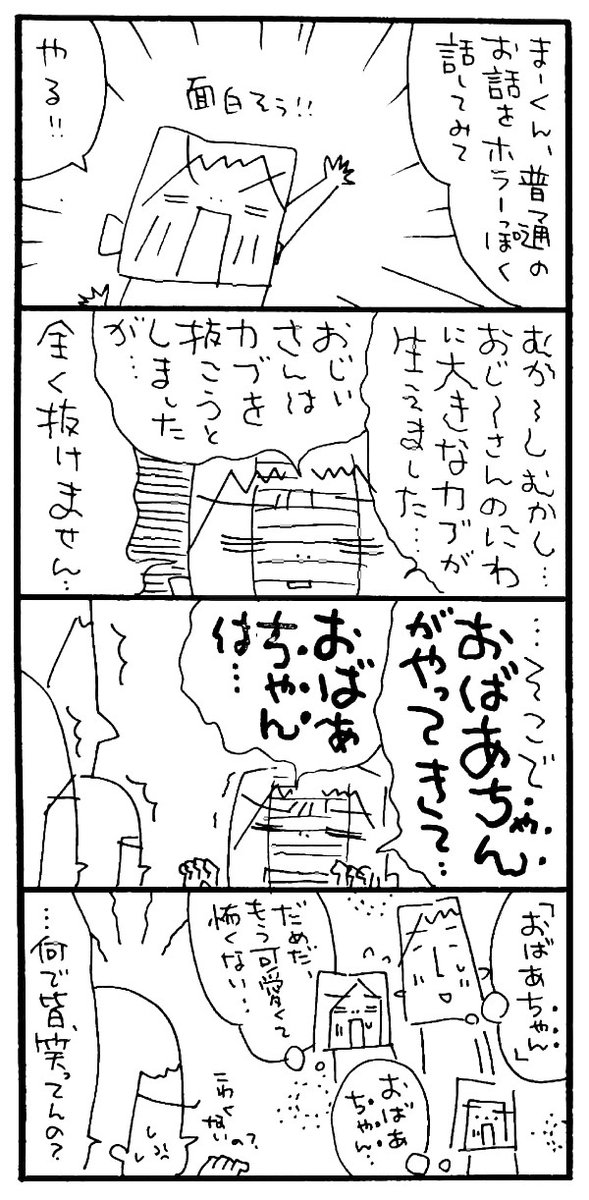 まーくん、普通の
お話をホラーっぽく
話してみて
面白そう!!
やる!!
むか〜しむかし…
おじ〜さんのにわ
に大きなカブが
生えました…
おじい
さんは
カブを
抜こうと
しました
が…
全く抜けません…
…そこで…
おばあちゃん
がやってきて…
おばあ
ちゃん
は…
「おばあちゃん」
だめだ、
もう可愛くて
怖くない…
おばあ
ちゃん…
こわく
ないの?
…何で皆、笑ってんの?